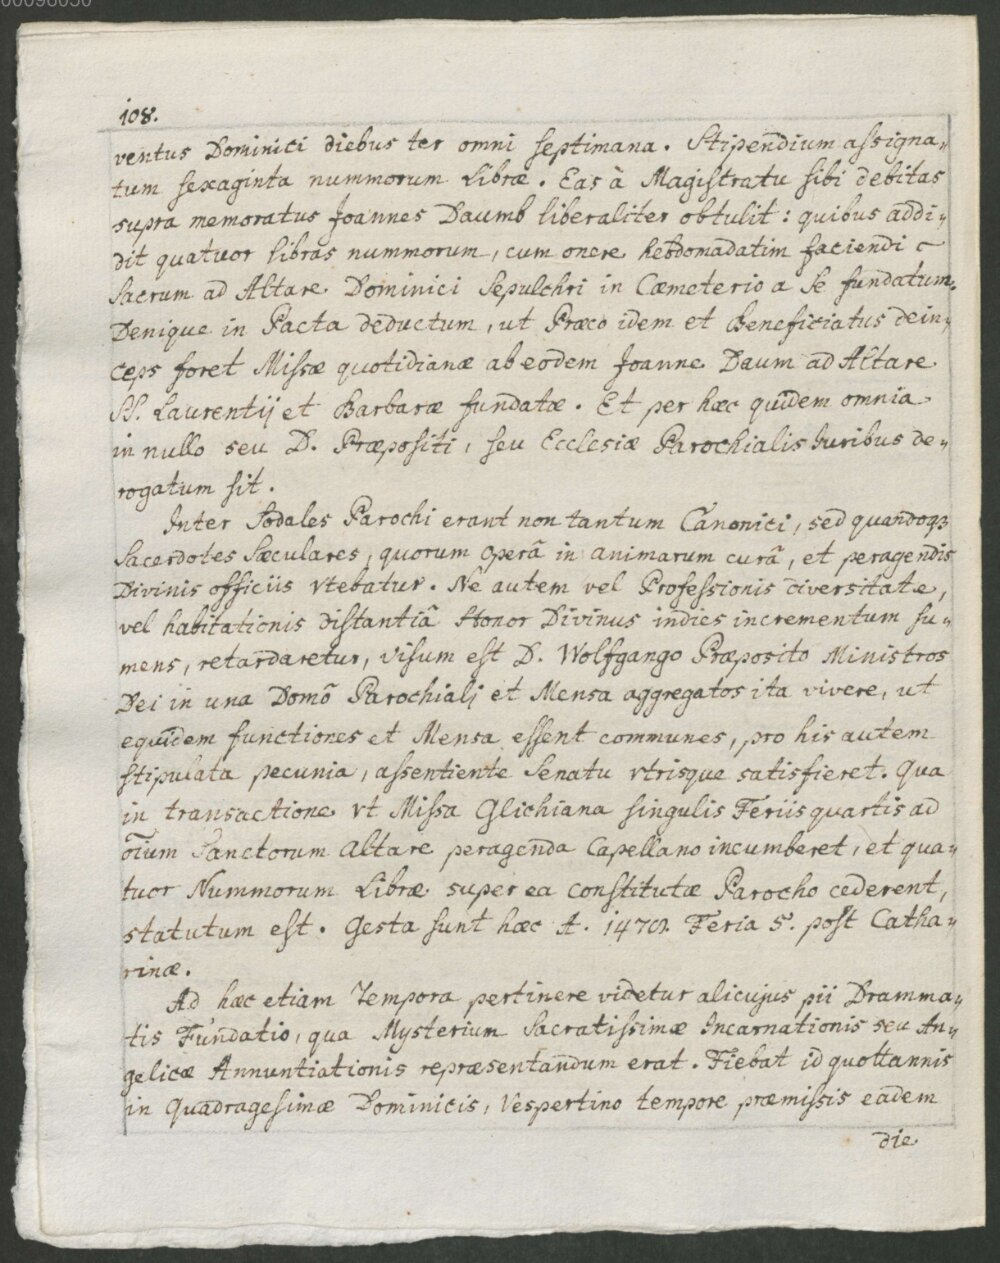 00096050
108.
ventus Dominici diebus ter omni septimana. Stipendium assigna„
tum sexaginta nummorum Libræ. Eas à Magistratu sibi debitas
supra memoratus Joannes Daumb liberaliter obtulit: quibus addi„
dit quatuor libras nummorum, cum onere hebdomadatim faciendi
Sacrum ad Altare Dominici Sepulchri in Cæmeterio a Se fundatum.
Denique in Pacta deductum, ut Præco idem et Beneficiatus dein„
ceps foret Missæ quotidianæ ab eodem Joanne Daum ad Altare
SS. Laurentij et Barbaræ fundatæ. Et per hæc quidem omnia
in nullo seu D. Præpositi, seu Ecclesiæ Parochialis Juribus de„
rogatum sit.
Inter Sodales Parochi erant non tantum Canonici, sed quandoqȝ
Sacerdotes Sæculares, quorum operâ in animarum curâ, et peragendis
Divinis officiis vtebatur. Ne autem vel Professionis diversitate,
vel habitationis distantiâ Honor Divinus indies incrementum su„
mens, retardaretur, visum est D. Wolfgango Præposito Ministros
Dei in una Domô Parochiali et Mensa aggregatos ita vivere, ut
equidem functiones et Mensa essent communes, pro his autem
stipulata pecunia, assentiente Senatu vtrisque satisfieret. Qua
in transactione vt Missa Glichiana singulis Feriis quartis ad
oīum Sanctorum Altare peragenda Capellano incumberet, et qua„
tuor Nummorum Libræ super ea constitutæ Parocho cederent,
statutum est. Gesta sunt hæc A. Feria 5. post Catha„
rinæ.
Ad hæc etiam Tempora pertinere videtur alicujus pii Dramma„
tis Fundatio, qua Mysterium Sacratissimæ Incarnationis seu An„
gelicæ Annuntiationis repræsentandum erat. Fiebat id quottannis
in Quadragesimæ Dominicis, Vespertino tempore præmissis eadem
die